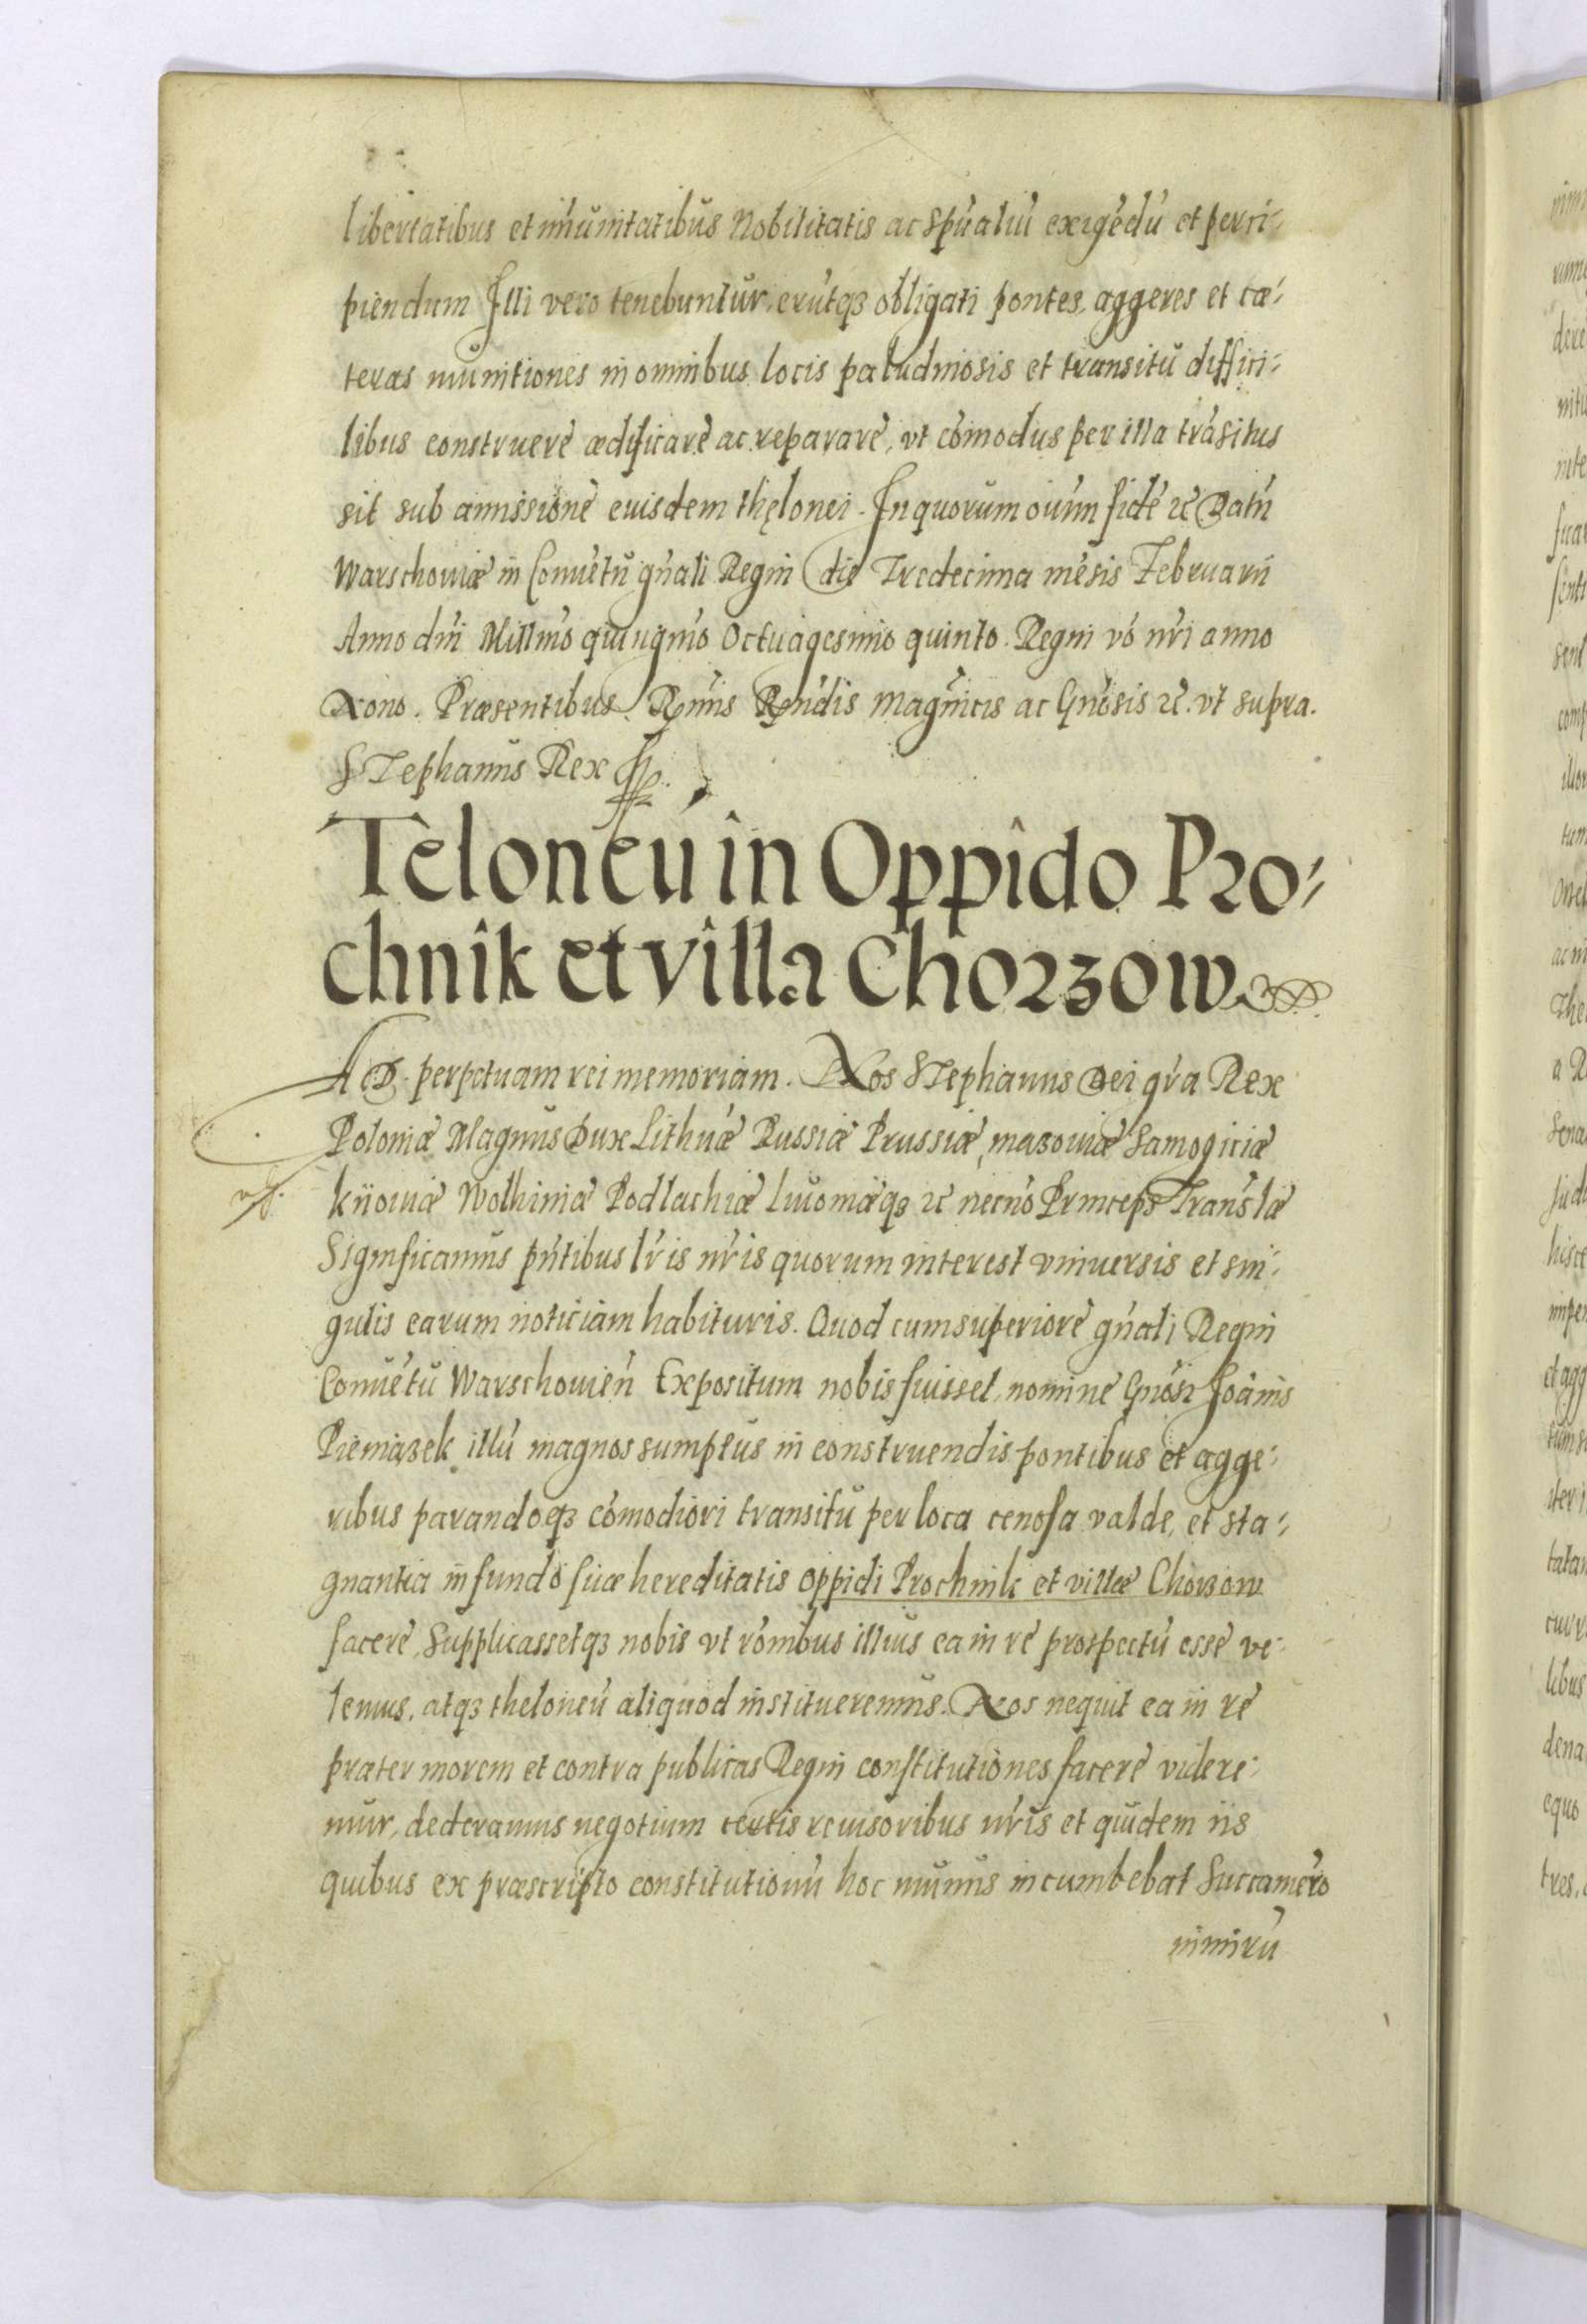 libertatibus et im̃unitatibus Nobilitatis ac Spũaliũ exigẽdũ et perci-
piendum Illi vero tenebuntur, erũtqꝫ obligati pontes, aggeres et cæ-
teras munitiones in omnibus locis paludinosis et transitu diffici-
libus construere ædificare ac reparare, vt cõmodus per illa trãsitus
sit sub amissione eiusdem thęlonei. In quorum oiũm fidẽ ꝛc̃ Datũ
Warschouiæ in Conuẽtu gñali Regni die Tredecima mẽsis Februarii
Anno dñi Millmo quingmo Octuagesimo quinto. Regni vo nr̃i anno
Nono. Præsentibus Rm̃is Rñdis Magñicis ac Gñosis ꝛc̃. vt supra.
STephanus Rex
Teloneũ in Oppido Pro-
chnik et villa Chorzow
AD perpetuam rei memoriam. Nos STephanus Dei gr̃a Rex
Poloniæ Magnus Dux Lithuæ Russiæ Prussiæ, Mazouiæ Samogiciæ
Kiiouiæ Wolhiniæ Podlachiæ Liuoniæqꝫ ꝛc̃ necno Princeps Transłæ
Significamus pñtibus lr̃is nr̃is quorum interest vniuersis et sin-
gulis earum noticiam habituris. Quod cum superiore gñali Regni
Conuẽtu Warschouieñ Expositum nobis fuisset, nomine Gñosi Joãnis
Pieniązek illũ magnos sumptus in construendis pontibus et agge-
ribus parandoqꝫ cõmodiori transitu per loca cenosa valde, et sta-
gnantia in fundo suæ hereditatis oppidi Prochnik et villæ Chorzow
facere, Supplicassetqꝫ nobis vt rõnibus illius ea in re prospectũ esse ve-
lemus, atqꝫ theloneũ aliquod institueremus. Nos nequit ea in re
præter morem et contra publicas Regni constitutiones facere videre-
mur, dederamus negotium certis reuisoribus nr̃is et quidem iis
quibus ex præscripto constitutionũ hoc munus incumbebat Succamẽro
nimirũ